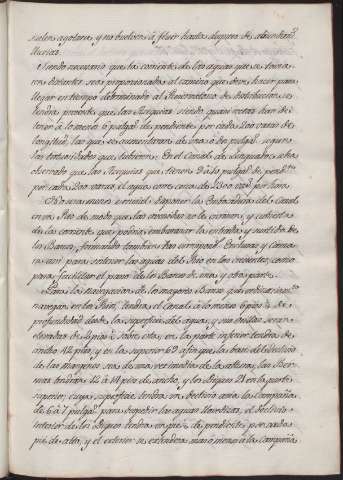 suelen agotarse, y no buelven à fluir hasta despues de abundantes
lluvias.
Siendo necesario que la corriente de las aguas que se toma-
ren distantes sea proporcionada al camino que deve hacer para
llegar en tiempo determinado al Reservatorio de distribucion, se
tendra presente que las Rasquias siendo quasi rectas han de
tener à lo menos 6 pulgas de pendiente por cada 200 varas de
longitud, las que se aumentaran de una à dos pulgas segun
las tortuosidades que tubieren. En el Canal de Languedoc se ha
observado que las Rasquias que tienen 9 à 10 pulgas de pendte
por cada 200 varas, el agua corre cerca de 2300 varas por hora.
No será menos esencial disponer la Embocadura del Canal
en un Rio de modo que las avenidas no le arruinen, y cubierta
de la corriente que podria embarazar la entrada y surtida de
los Barcos, formando tambien las correspondtes Esclusas y Cama-
ras para sostener las aguas del Rio en las crecientes, como
para facilitar el pasar de los Barcos de una y otra parte.
Para la navegacion de los mayores Barcos que ordinariamente
navegan en los Rios, tendrá el Canal à lo menos 6 pies de
profundidad desde la superficie del agua, y sus orillas seran
elevadas de 2 pies sobre esta, en la parte inferior tendra de
ancho 42 pies, y en la superior 60 à fin que la base del declivio
de las margenes sea de una vez y media de la altura, las Ber-
mas tendran 12 à 14 pies de ancho, y los Diques 21 en la parte
superior, cuya superficie tendra un declivio acia la campaña
de 6 à 7 pulgas para expedir las aguas llovedizas, el declivio
interior de los Diques tendra un pie de pendiente por cada
pie de alto, y el exterior se extendera mas ò menos à la campaña